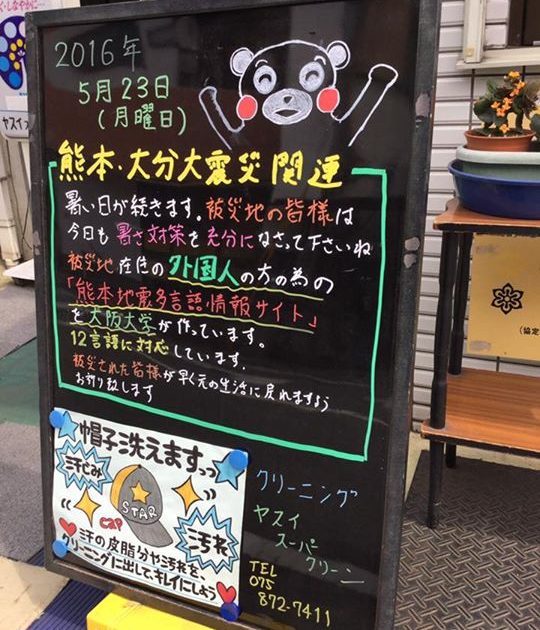 2016年
5月23日
(月曜日)
熊本・大分大震災関連
暑い日が続きます。被災地の皆様は
今日も暑さ対策を充分になさって下さいね
被災地在住の外国人の方の為の
「熊本地震多言語情報サイト」
を大阪大学が作っています。
12言語に対応しています.
被災された皆様が早く元の生活に戻れますよう
お祈り致します
帽子洗えますっっ
汗じみ
STAR
CaP
汚れ
汗の皮脂分や汚れを、
クリーニングに出して、キレイにしよう
クリーニング
ヤスイ
スーパー
クリーン
TEL
075
872-7411
ヤスイ
(協定